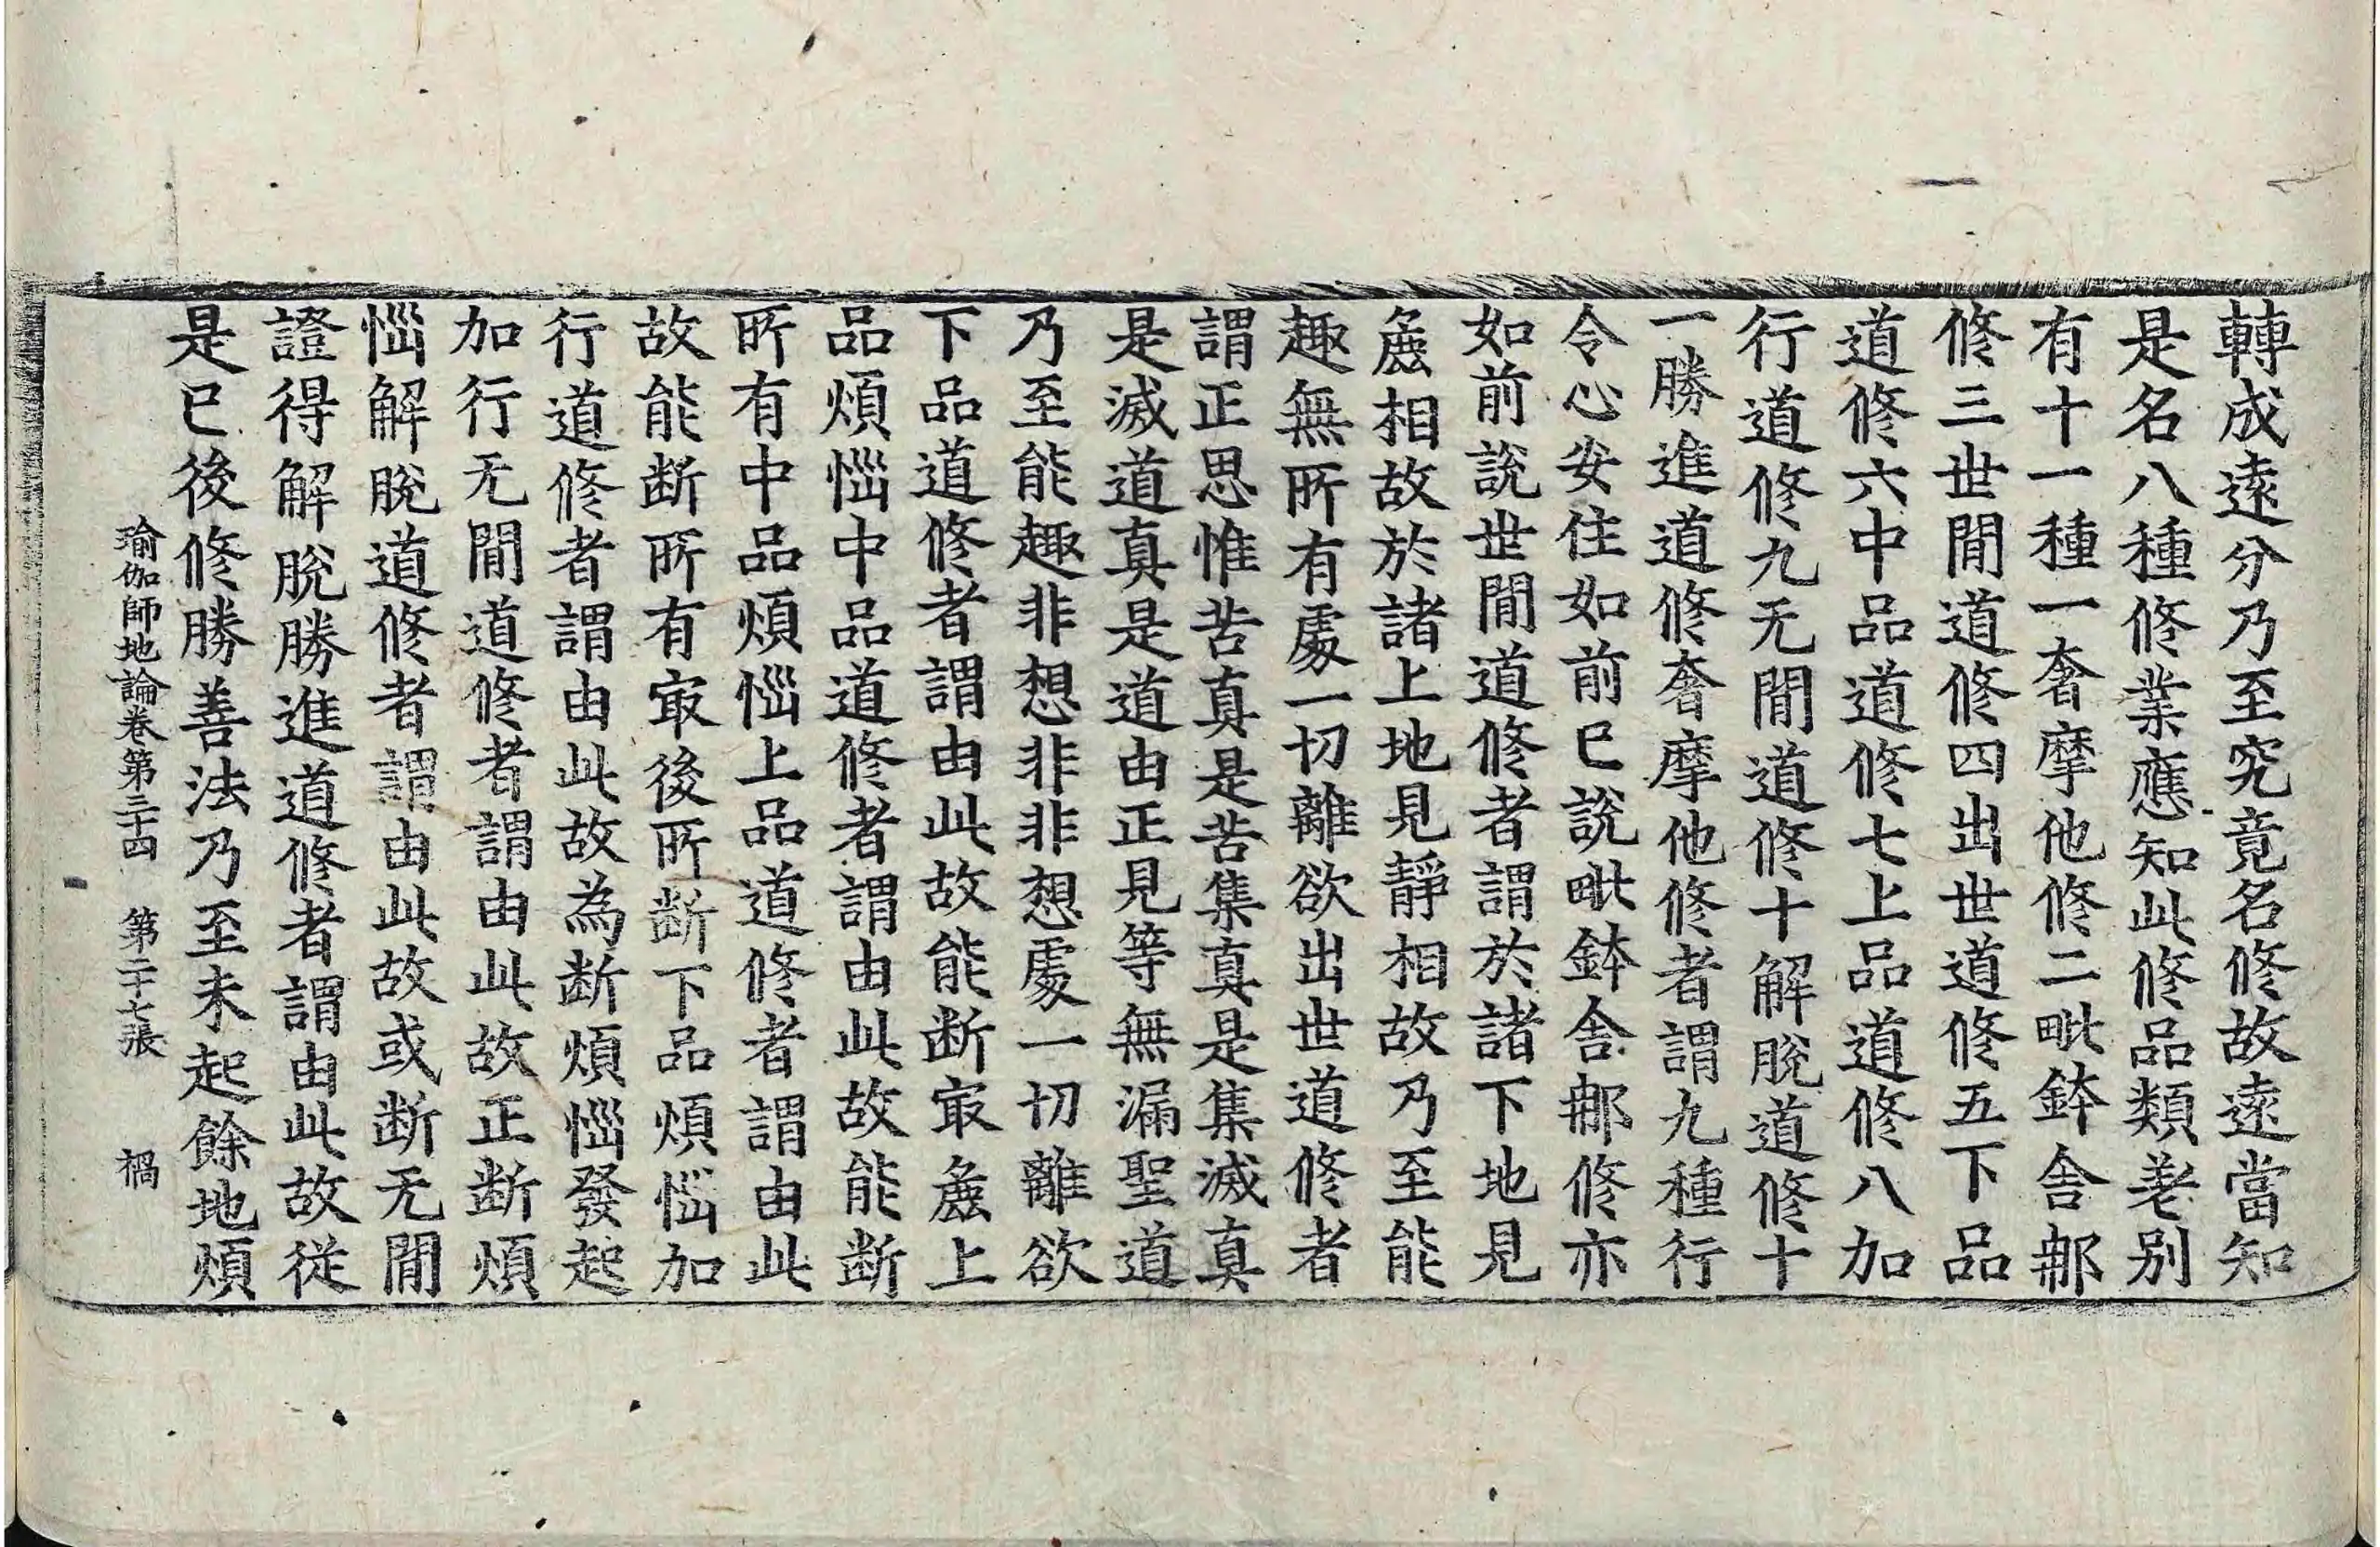 轉成遠分乃至究竟名修故遠當知
是名八種修業應知此修品類差别
有十一種一奢摩他修二毗鉢舍那
修三世間道修四出世道修五下品
道修六中品道修七上品道修八加
行道修九无間道修十解脫道修十
一勝進道修奢摩他修者謂九種行
令心安住如前已說毗鉢舍那修亦
如前說世間道修者謂於諸下地見
麁相故於諸上地見靜相故乃至能
趣無所有處一切離欲出世道修者
謂正思惟苦真是苦集真是集滅真
是滅道真是道由正見等無漏聖道
乃至能趣非想非非想處一切離欲
下品道修者謂由此故能断㝡麁上
品煩惱中品道修者謂由此故能断
所有中品煩惱上品道修者謂由此
故能断所有㝡後所断下品煩惱加
行道修者謂由此故為断煩惱發起
加行无間道修者謂由此故正断煩
惱解脫道修者謂由此故或断无間
證得解脫勝進道修者謂由此故從
是已後修勝善法乃至未起餘地煩
瑜伽師地論卷第三十四 第二十七張 禍